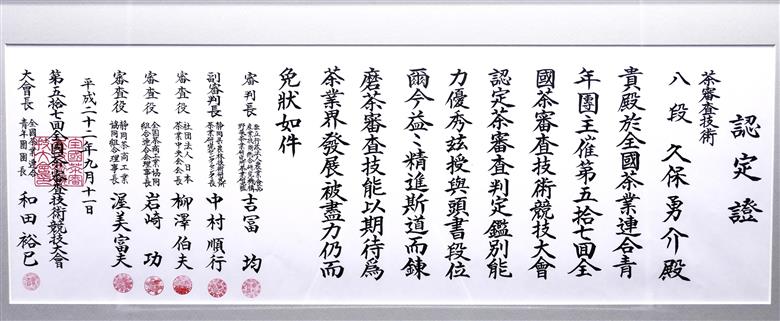 認定證
茶審査技術
八段 久保勇介殿
貴殿於全國茶業連合青
年團主催第五拾七回全
國茶審査技術競技大會
認定茶審査判定鑑別能
力優秀玆授與頭書段位
爾今益〻精進斯道而錬
磨茶審査技能以期待爲
茶業界發展被盡力仍而
免狀如件
審判長 吉冨 均
副審判長 中村順行
審査役 社団法人日本茶業中央会会長 柳澤伯夫
審査役 全国茶商工業協同組合連合会理事長 岩崎 功
審査役 静岡茶商工業協同組合理事長 渥美富夫
平成二十二年九月十一日
第五拾七回全國茶審査技術競技大會
大會長 全國茶業連合青年團團長 和田裕巳